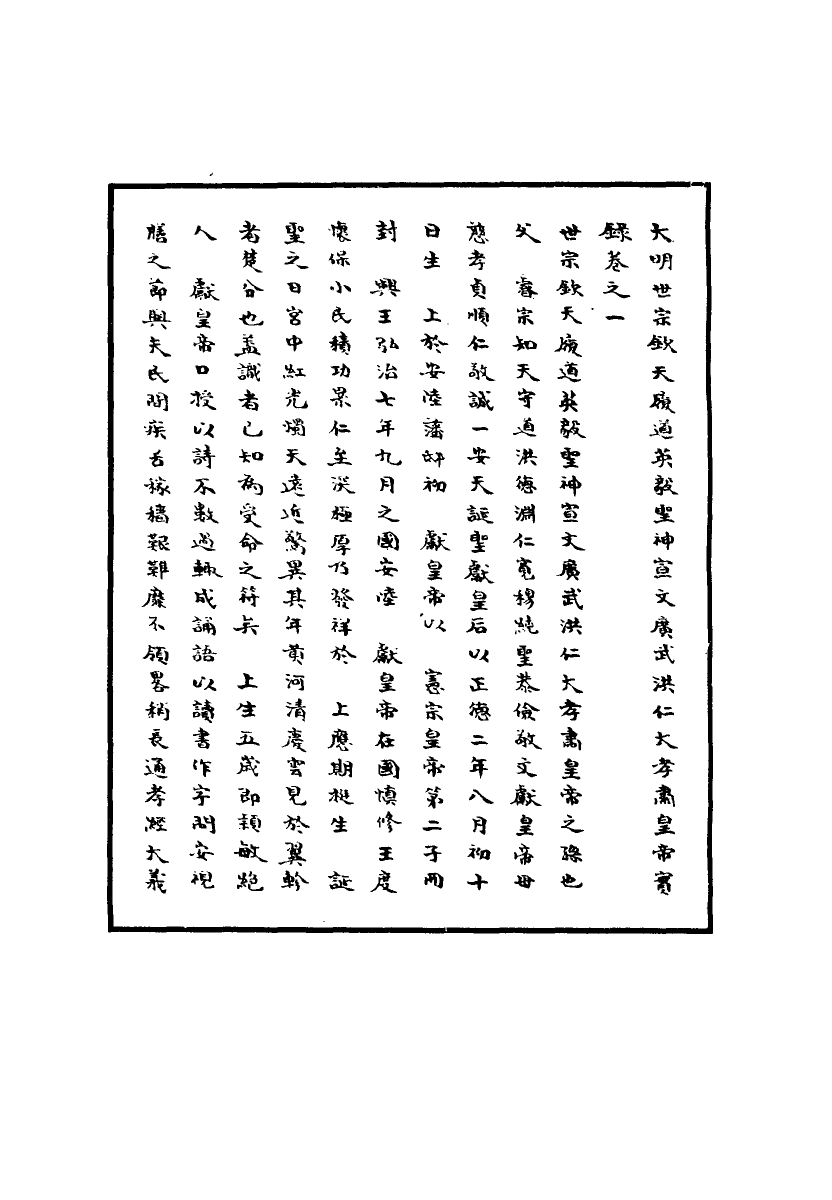 大明世宗欽天履道英毅聖神宣文廣武洪仁大孝肅皇帝實
錄卷之一
世宗欽天履道英毅聖神宣文廣武洪仁大孝肅皇帝之孫也
父　睿宗知天守道洪德淵仁寬穆純聖恭儉敬文獻皇帝母
慈孝貞順仁敬誠一安天誕聖獻皇后以正德二年八月初十
日生　上於安陸藩邸初　獻皇帝以　憲宗皇帝第二子冊
封　興王弘治七年九月之國安陸　獻皇帝在國慎修王度
懷保小民積功累仁至深極厚乃發祥於　上應期挺生　誕
聖之日宮中紅光燭天遠近驚異其年黃河清慶雲見於翼軫
者楚分也蓋識者已知為受命之符矣　上生五歲即穎敏絕
人　獻皇帝口授以詩不數過輒成誦語以讀書作字問安視
膳之節與夫民間疾苦稼穡艱難靡不領畧稍長通孝經大義